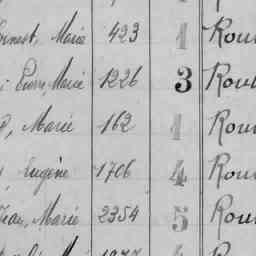 Ernest, Marie 423 1 Rou
Pierre Marie 1226 3 Rou
, Marie 162 1 Rou
Eugène 1706 4 Rou
Jean, Marie 2354 5 Rou